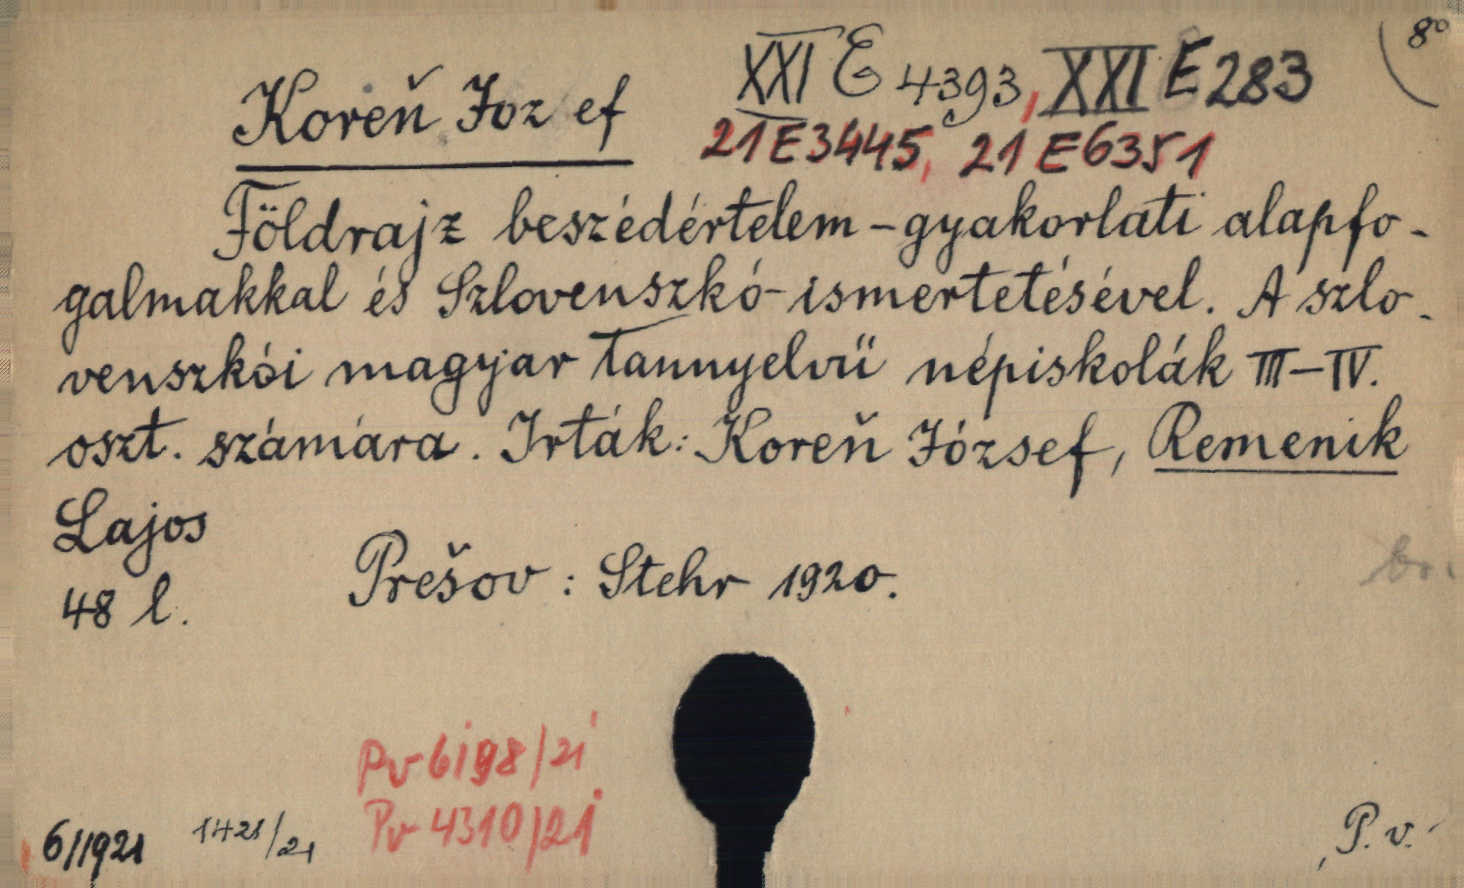 8°
XXI E 4393, XXI E 283
Koreň Jozef
21 E 3445, 21 E 6351
Földrajz beszédértelem-gyakorlati alapfo-
galmakkal és Szlovenszkó-ismertetésével. A szlo-
venszkói magyar tannyelvű népiskolák III-IV.
oszt. számára. Irták: Koreň József, Remenik
Lajos
48 l.
Prešov: Stehr 1920.
Pv 6198/21
Pv 4310/21
6/1921 1421/21
P. v.